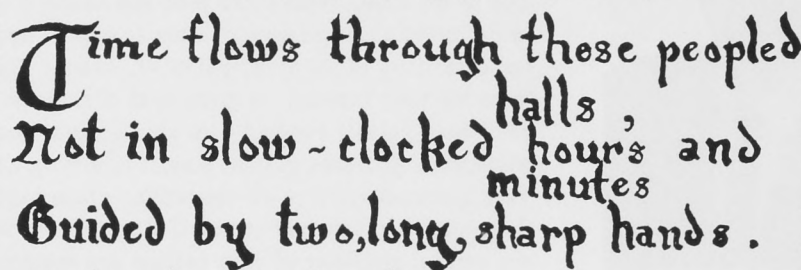 Time flows through these peopled
halls,
Not in slow-clocked hours and
minutes
Guided by two, long, sharp hands.